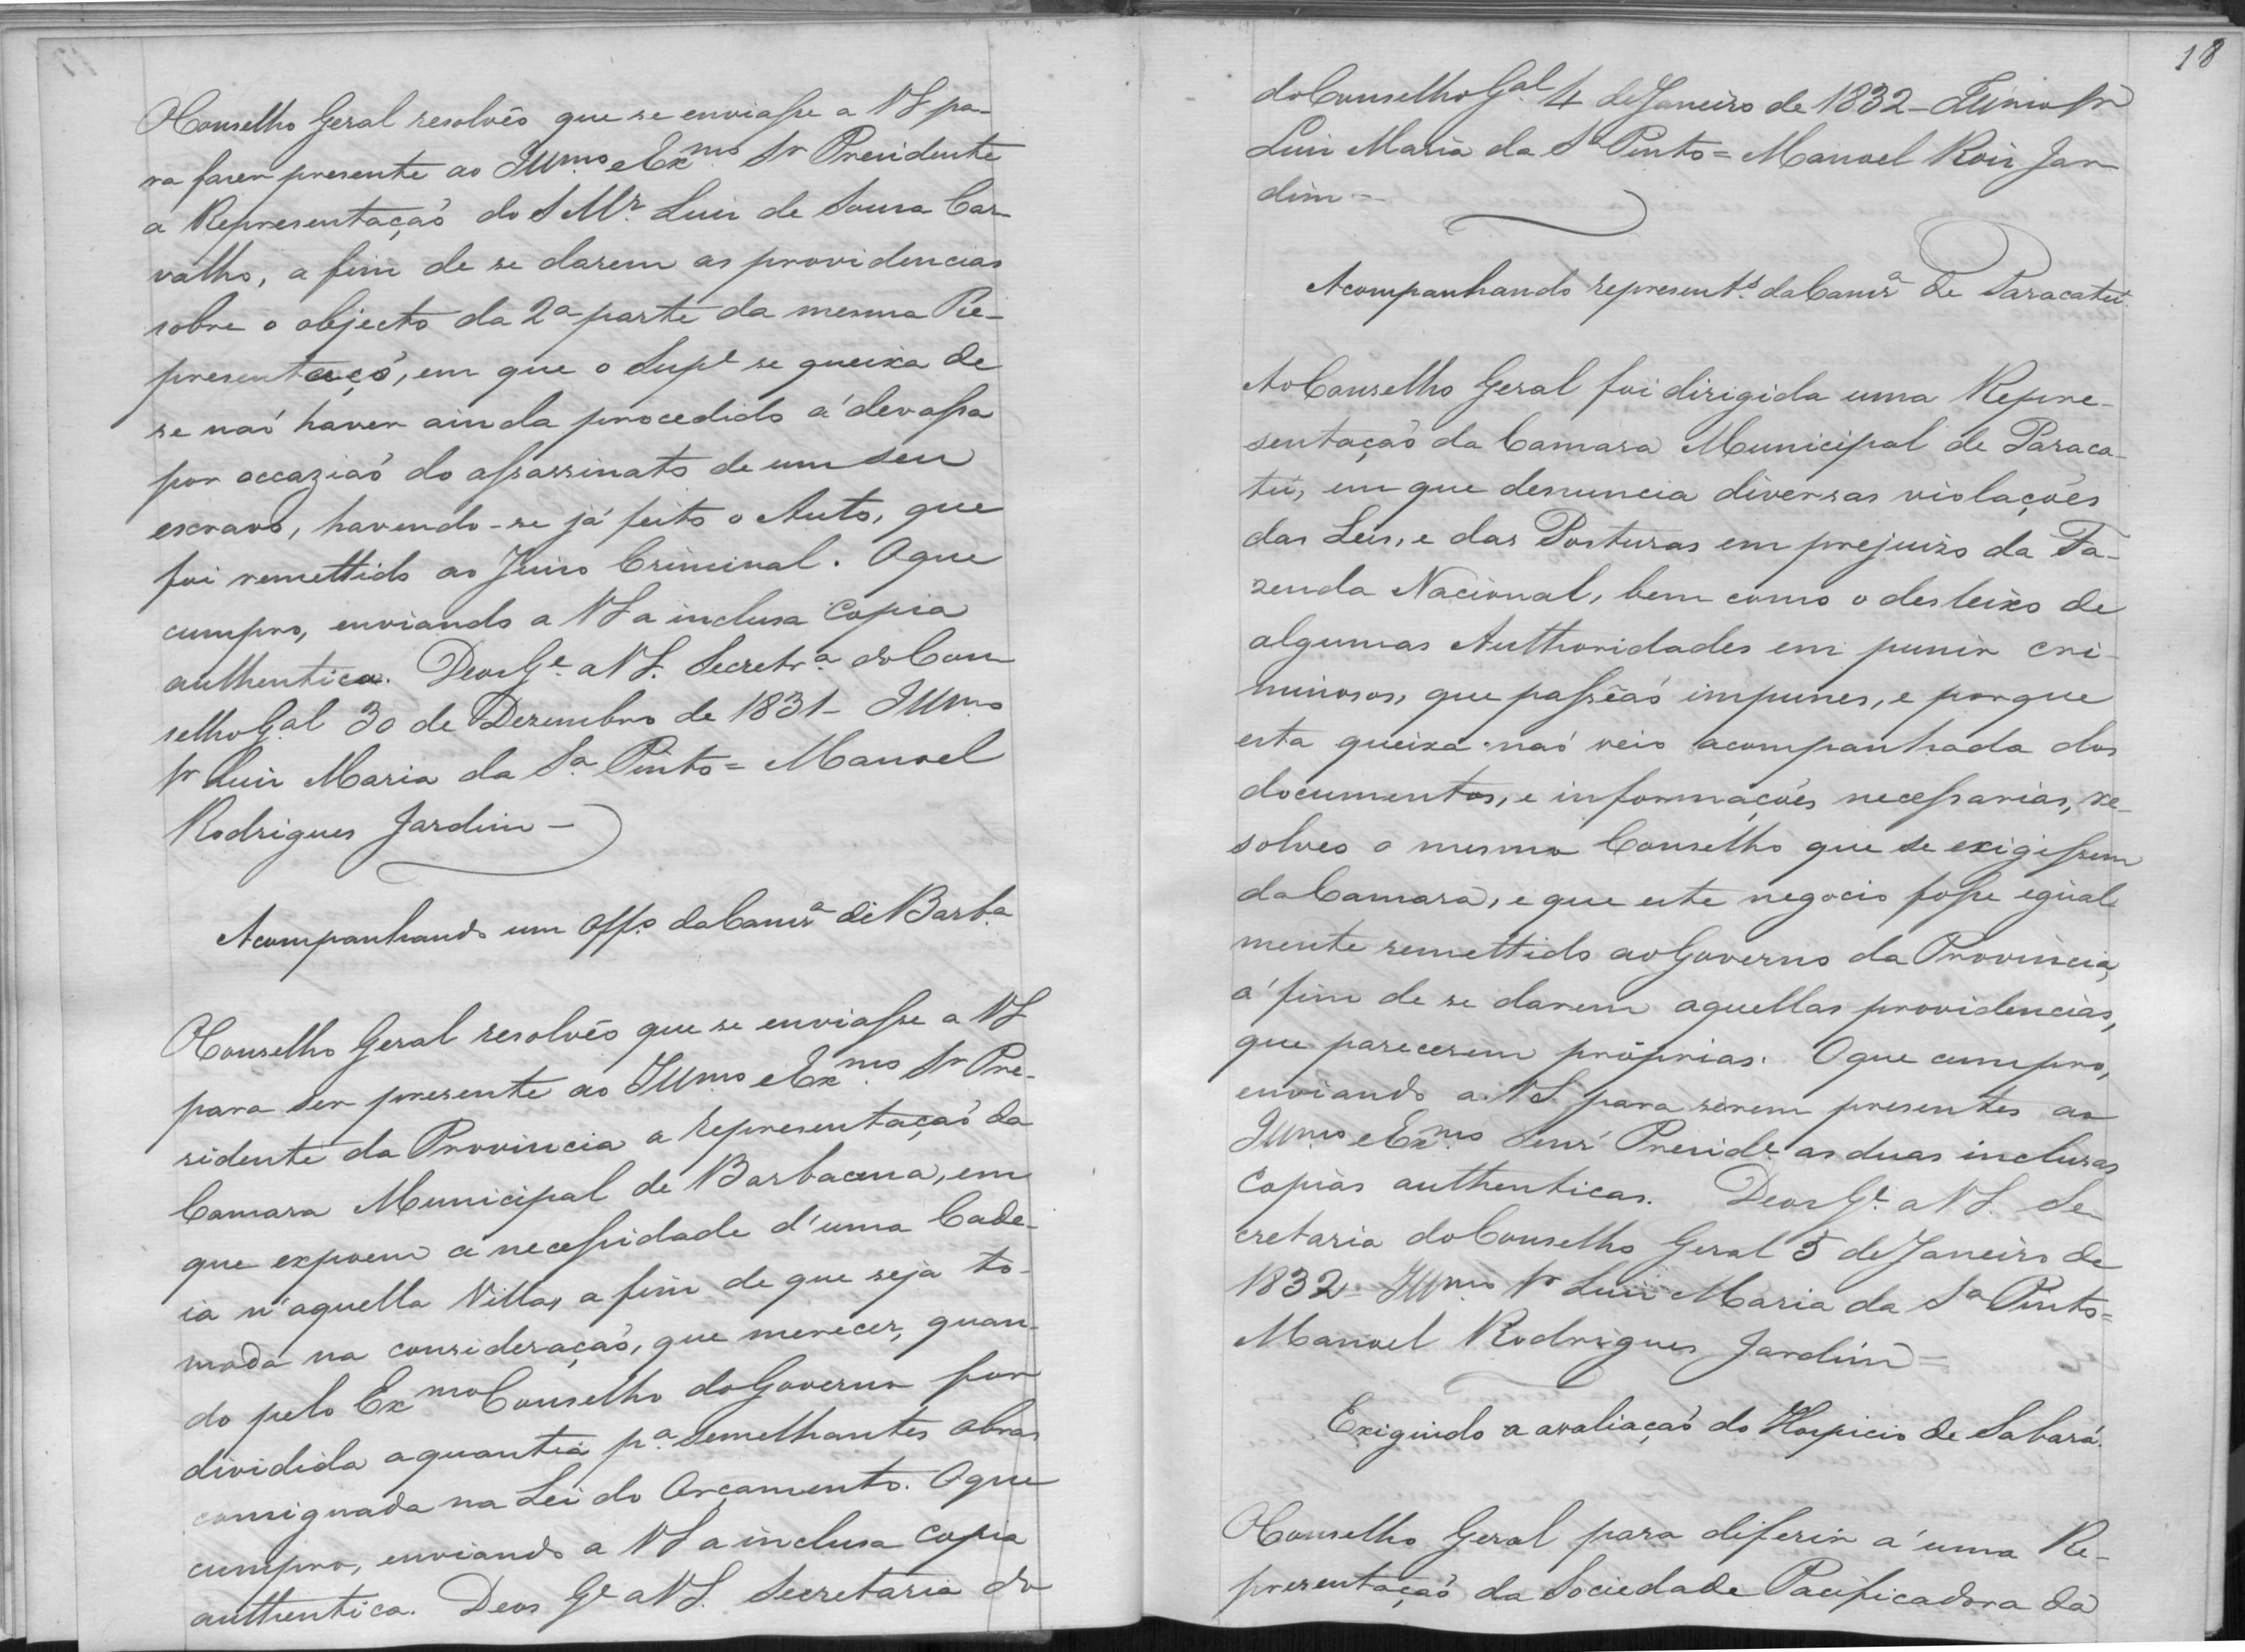 O Conselho Geral resolvêo que se enviasse a VS pa-
ra fazer presente ao Illmo e Exmo Sr Presidente
a Representaçaõ do S Mr Luiz de Souza Car-
valho, a fim de se darem as providencias
sobre o objecto da 2ª parte da mesma Re-
presentaçõ, em que o Supe se queixa de
se naõ haver ainda procedido á devassa
por occaziaõ do assassinato de um seu
escravo, havendo-se já feito o Auto, que
foi remettido ao Juizo Criminal. O que
cumpro, enviando a VS a inclusa Copia
authentica. Deos Ge a VS. Secretra do Con
selho Gal 30 de Dezembro de 1831 - Illmo
Sr Luiz Maria da Sa Pinto = Manoel
Rodrigues Jardim -
Acompanhando um Offo da Camra de Barba
O Conselho Geral resolvêo que se enviasse a VS
para ser presente ao Illmo e Exmo Sr Pre-
sidente da Provincia a representaçaõ da
Camara Municipal de Barbacena, em
que expoem a necessidade d'uma Cade-
ia n'aquella Villa, a fim de que seja to-
mada na consideraçaõ, que merecer, quan-
do pelo Exmo Conselho do Governo for
dividida a quantia pa semelhantes obras
consignada na Lei do Orçamento. O que
cumpro, enviando a VS a inclusa Copia
authentica. Deos Ge a VS. Secretaria do
18
do Conselho Gal 4 de Janeiro de 1832 - Illmo Sr
Luiz Maria da Sa Pinto = Manoel Roiz Jar
dim =
Acompanhando represents da Camra de Paracatú
Ao Conselho Geral foi dirigida uma Repre-
sentaçaõ da Camara Municipal de Paraca-
tú, em que denuncia diversas violações
das Leis, e das Posturas em prejuizo da Fa-
zenda Nacional, bem como o desleixo de
algumas Authoridades em punir cri-
minosos, que passêaõ impunes, e porque
esta queixa naõ veio acompanhada dos
documentos, e informações necessarias, re-
solveo o mesmo Conselho que se exigissem
da Camara, e que este negocio fosse egual
mente remettido ao Governo da Provincia,
á fim de se darem aquellas providencias,
que parecerem próprias. O que cumpro,
enviando a VS para serem presentes ao
Illmo e Exmo Senr Preside as duas inclusas
Copias authenticas. Deos Ge a VS. Se-
cretaria do Conselho Geral 5 de Janeiro de
1832 - Illmo Sr Luiz Maria da Sa Pinto =
Manoel Rodrigues Jardim =
Exigindo a avaliaçaõ do Hospicio de Sabará.
O Conselho Geral para diferir á uma Re-
presentaçaõ da Sociedade Pacificadora da